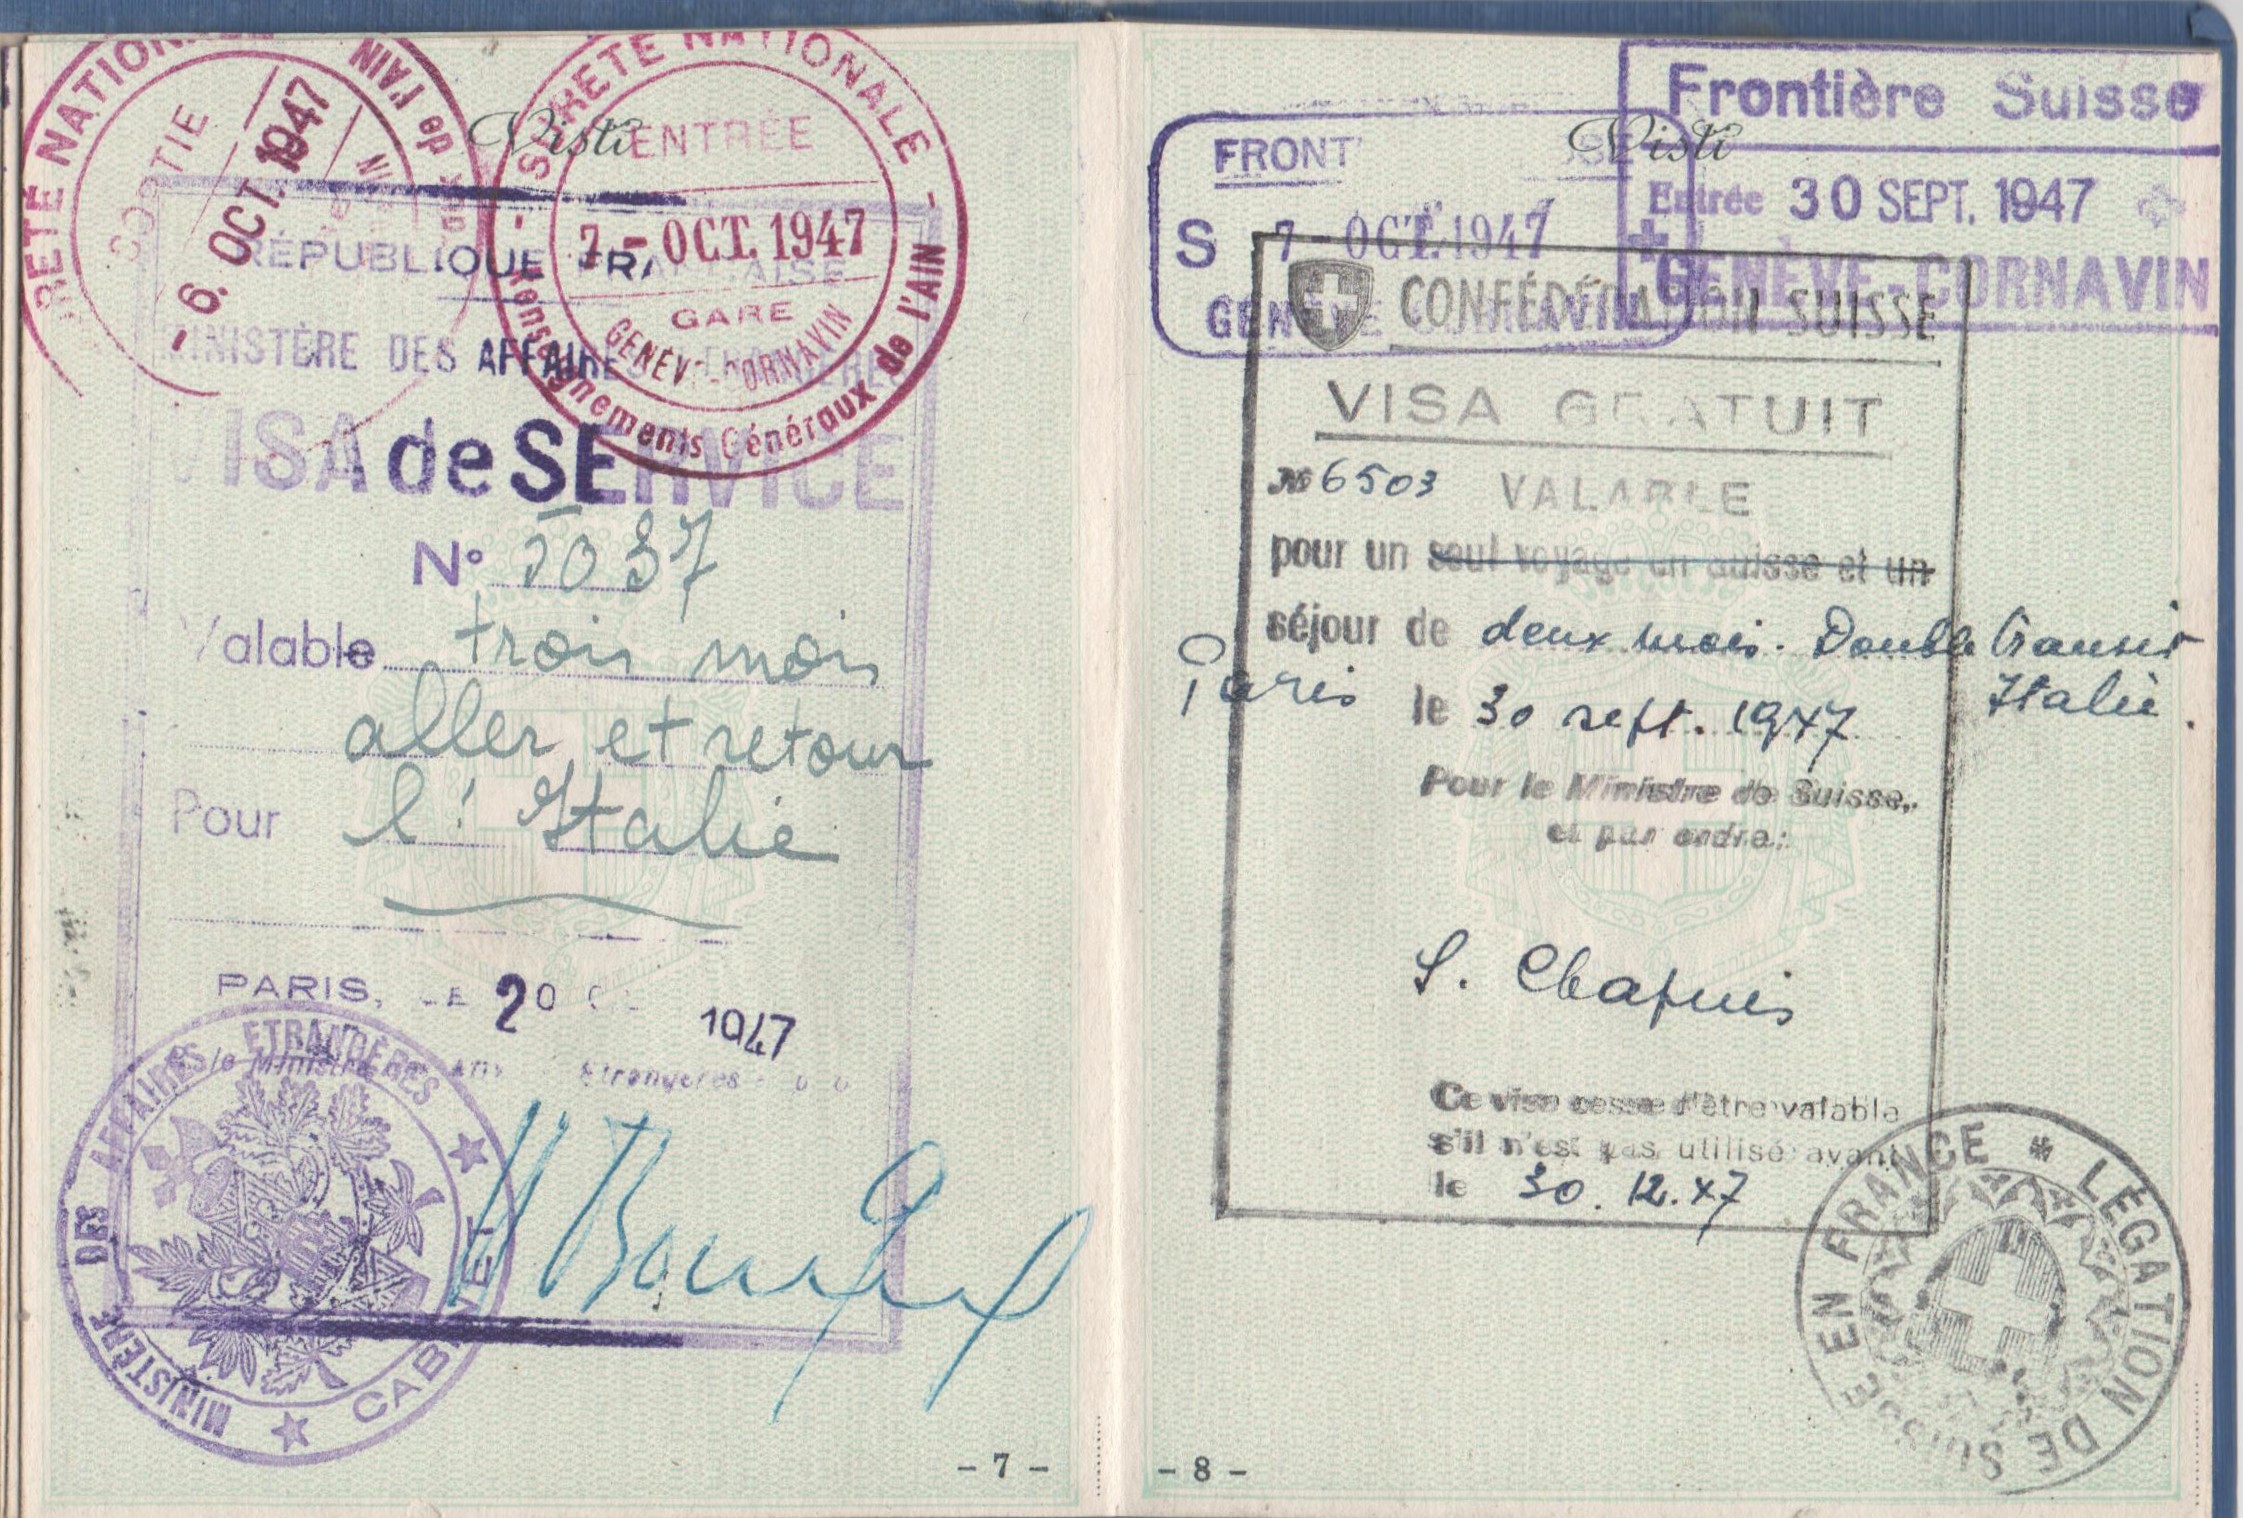 SÛRETÉ NATIONALE
de l'AIN
SORTIE
- 6. OCT. 1947
Visti
SÛRETÉ NATIONALE -
ENTRÉE
7 - OCT. 1947
GARE
GENÈVE-CORNAVIN
- Renseignements Généraux de l'AIN
RÉPUBLIQUE FRANÇAISE
MINISTÈRE DES AFFAIRES ÉTRANGÈRES
VISA de SERVICE
N° 5037
Valable trois mois
aller et retour
Pour l'Italie
PARIS, LE 20 1947
le Ministre Etrangères
MINISTÈRE DES AFFAIRES ETRANGÈRES
CABINET
- 7 -
Visti
Frontière Suisse
Entrée 30 SEPT. 1947
GENÈVE-CORNAVIN
FRONT SSE
S 7 - OCT. 1947
GENÈVE CORNAVIN
CONFÉDÉRATION SUISSE
VISA GRATUIT
№ 6503 VALABLE
pour un seul voyage en Suisse et un
séjour de deux mois. Double transit
Italie.
Paris le 30 sept. 1947
Pour le Ministre de Suisse,
et par ordre:
S. Chapuis
Ce visa cesse d'être valable
s'il n'est pas utilisé avant
le 30.12.47
LÉGATION DE SUISSE EN FRANCE
- 8 -